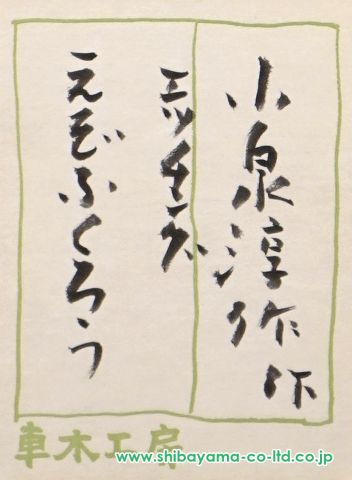 小泉淳作 作
三ッ重久
えぞふくろう
車木工房
www.shibayama-co-ltd.co.jp